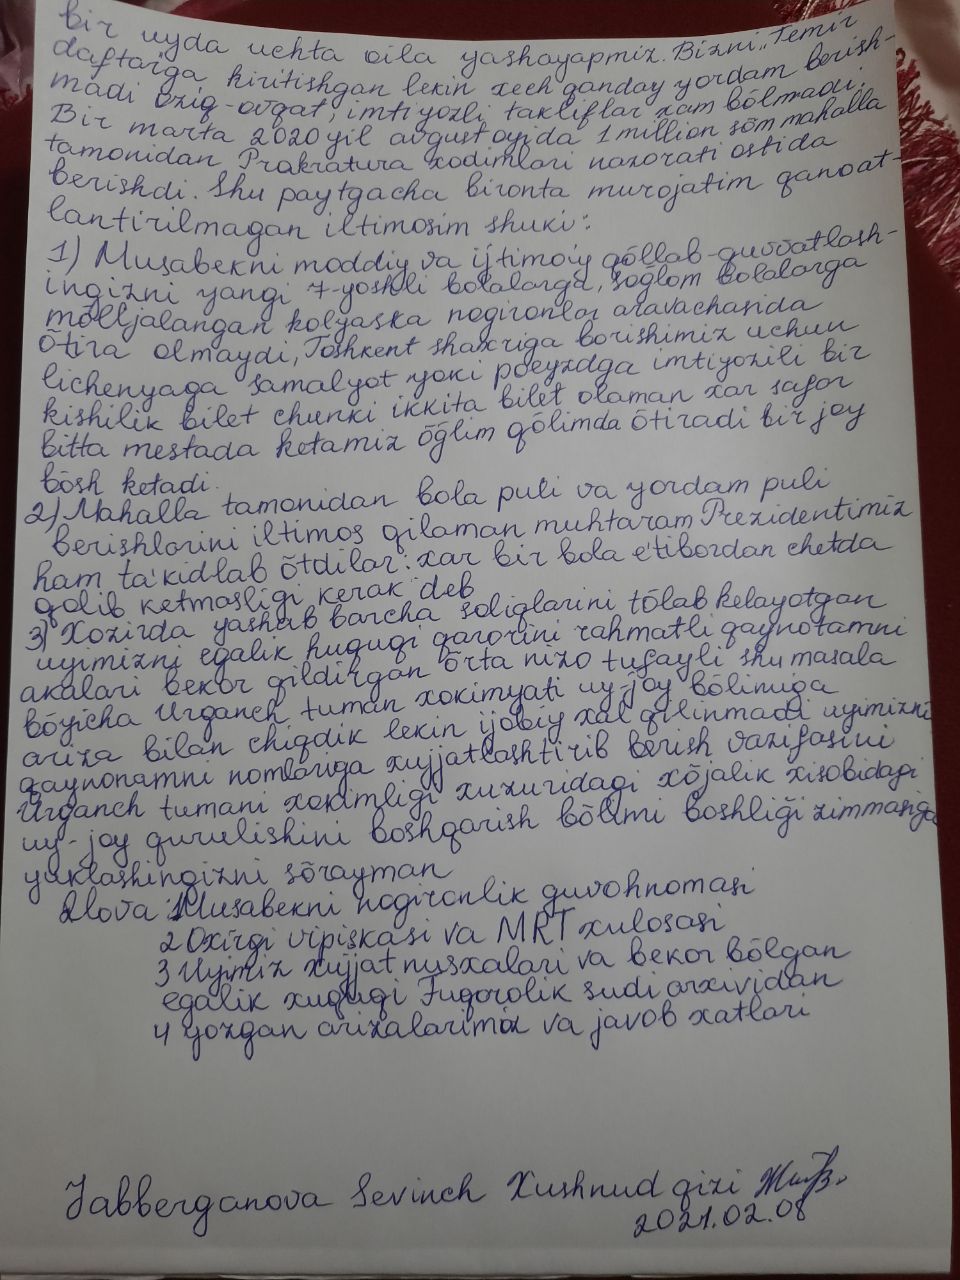 bir uyda uchta oila yashayapmiz. Bizni „Temir
daftarga kiritishgan lekin xech qanday yordam berish-
madi oziq-ovqat, imtiyozli takliflar xam bõlmadi.
Bir marta 2020 yil avgust oyida 1 million sõm mahalla
tamonidan Prakratura xodimlari nazorati ostida
berishdi. Shu paytgacha bironta murojatim qanoat-
lantirilmagan iltimosim shuki:
1) Musabekni moddiy va ijtimoiy qõllab-quvvatlash-
ingizni yangi 7-yoshli bolalarga, soğlom bolalarga
mõlljalangan kolyaska nogironlar aravachasida
õtira olmaydi, Toshkent shaxriga borishimiz uchun
lichenyaga samalyot yoki poeyzdga imtiyozili bir
kishilik bilet chunki ikkita bilet olaman xar safar
bitta mestada ketamiz õğlim qõlimda õtiradi bir joy
bõsh ketadi.
2) Mahalla tamonidan bola puli va yordam puli
berishlarini iltimos qilaman muhtaram Prezidentimiz
ham ta'kidlab õtdilar: xar bir bola e'tibordan chetda
qolib ketmasligi kerak deb
3) Xozirda yashab barcha soliqlarini tõlab kelayotgan
uyimizni egalik huquqi qarorini rahmatli qaynotamni
akalari bekor qildirgan õrta nizo tufayli shu masala
bõyicha Urganch tuman xokimyati uy-joy bõlimiga
ariza bilan chiqdik lekin ijobiy xal qilinmadi uyimizni
qaynonamni nomlariga xujjatlashtirib berish vazifasini
Urganch tumani xokimligi xuzuridagi xõjalik xisobidagi
uy-joy qurulishini boshqarish bõlimi boshliği zimmasiga
yuklashingizni sõrayman
Ilova 1 Musabekni nogironlik guvohnomasi
2 Oxirgi vipiskasi va MRT xulosasi
3 Uyimiz xujjat nusxalari va bekor bõlgan
egalik xuquqi Fuqorolik sudi arxividan
4 yozgan arizalarimiz va javob xatlari
Jabberganova Sevinch Xushnud qizi
2021.02.08